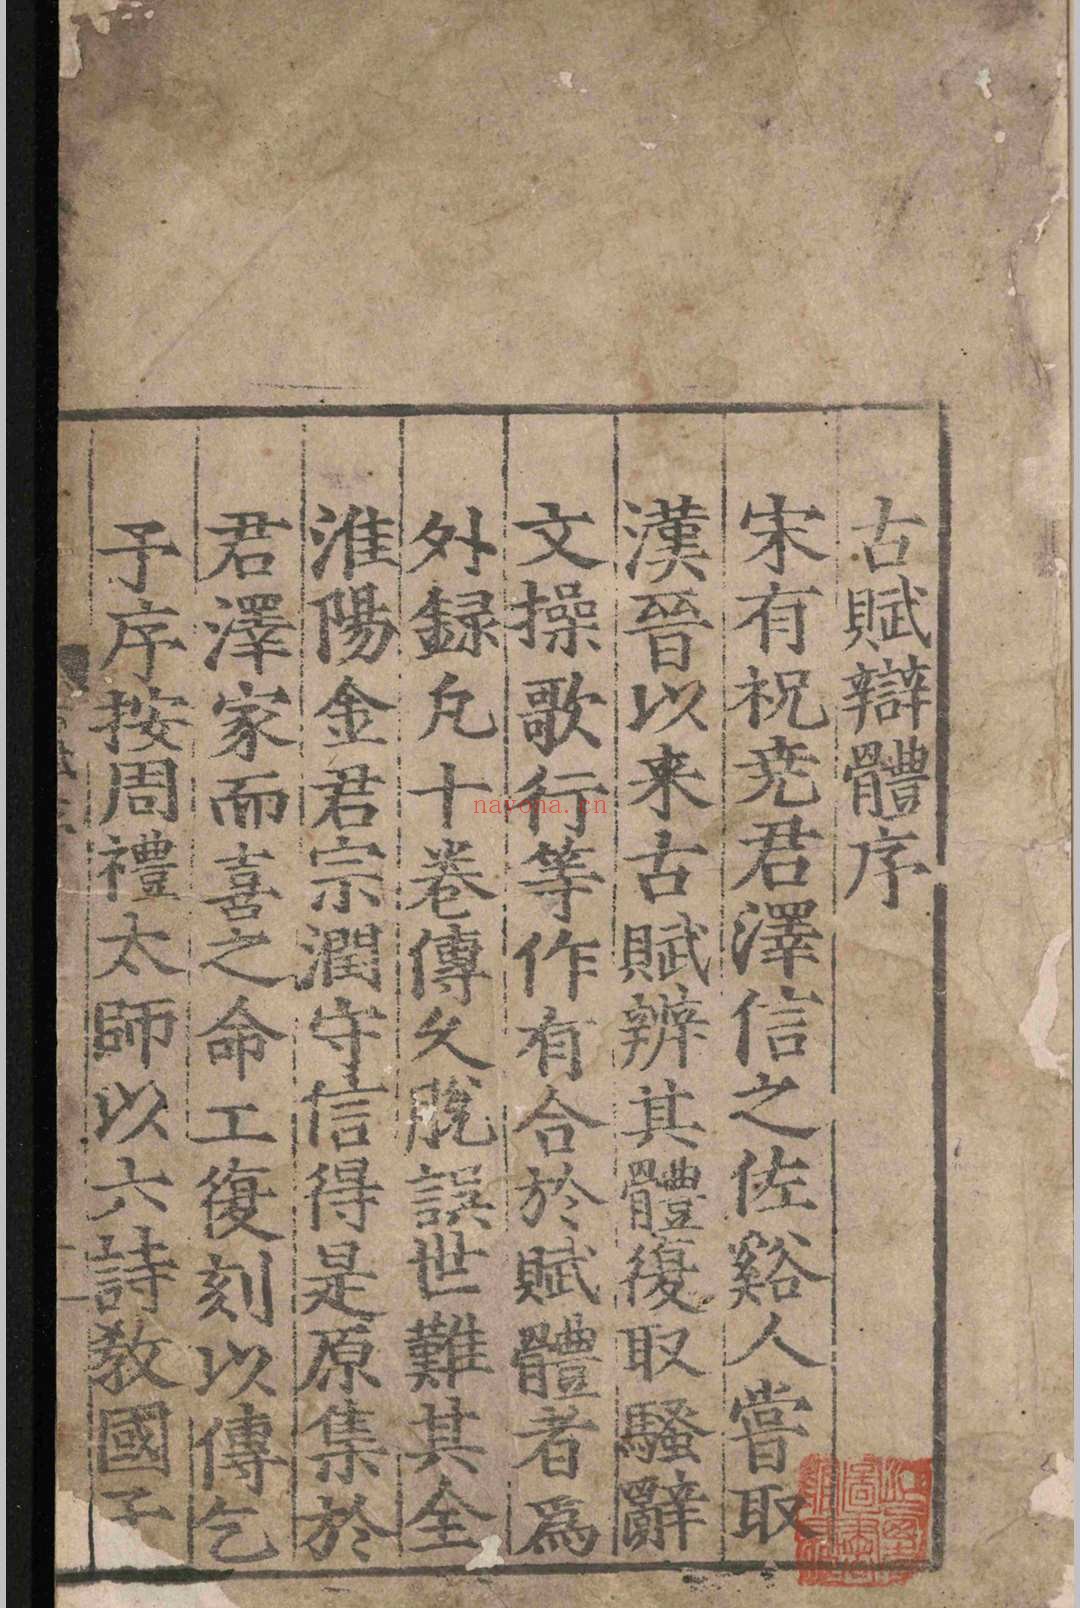 古賦辯體序
宋有祝尭君澤信之佐谿人嘗取
漢晉以来古賦辨其體復取騷辭
文操歌行等作有合於賦體者為
外録凡十卷傳久脫誤世難其全
淮陽金君宗潤守信得是原集於
君澤家而喜之命工復刻以傳乞
予序按周禮太師以六詩教國子
nayona.cn